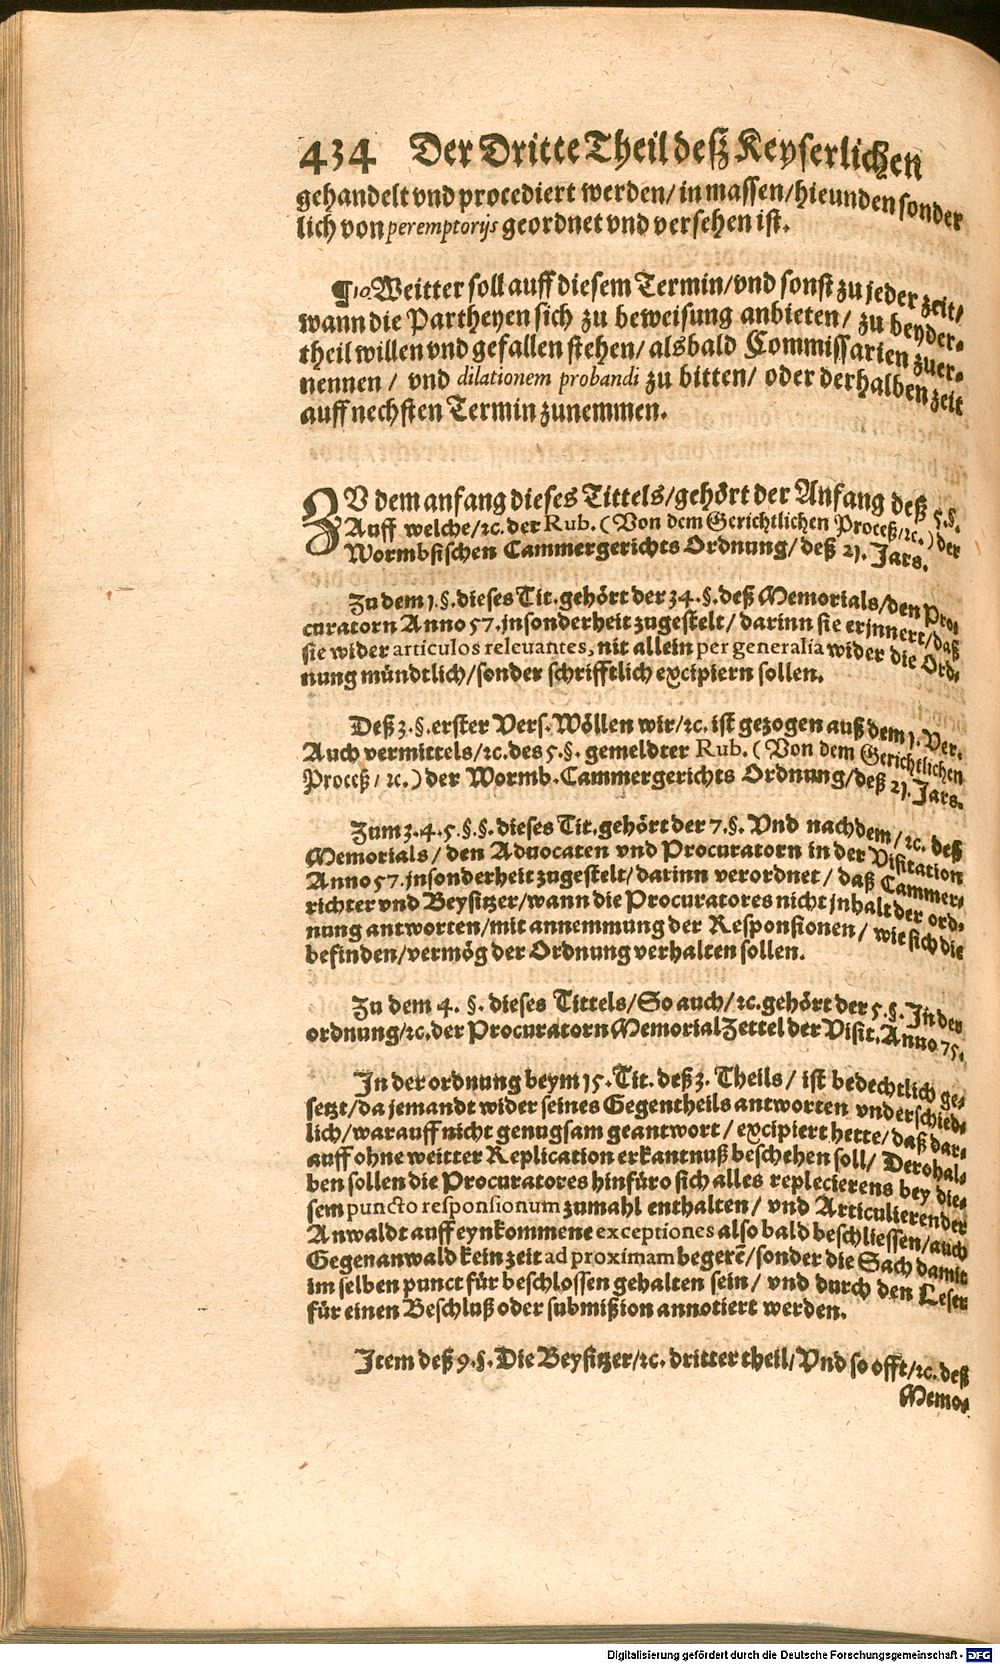 434 Der Dritte Theil deß Keyserlichen
gehandelt vnd procediert werden/ in massen/ hieunden sonder
lich von peremptorijs geordnet vnd versehen ist.
¶10. Weitter soll auff diesem Termin/ vnd sonst zu jeder zeit/
wann die Partheyen sich zu beweisung anbieten/ zu beyder-
theil willen vnd gefallen stehen/ alsbald Commissarien zuer-
nennen / vnd dilationem probandi zu bitten/ oder derhalben zeit
auff nechsten Termin zunemmen.
ZV dem anfang dieses Tittels/ gehört der Anfang deß 5.§.
Auff welche/ ꝛc. der Rub. (Von dem Gerichtlichen Proceß/ ꝛc.) der
Wormbsischen Cammergerichts Ordnung/ deß 21. Jars.
Zu dem 1.§. dieses Tit. gehört der 34.§. deß Memorials/ den Pro-
curatorn Anno 57. jnsonderheit zugestelt/ darinn sie erjnnert/ daß
sie wider articulos releuantes, nit allein per generalia wider die Ord-
nung mündtlich/ sonder schrifftlich excipiern sollen.
Deß 3.§. erster Vers. Wöllen wir/ ꝛc. ist gezogen auß dem 1. Ver.
Auch vermittels/ ꝛc. des 5.§. gemeldter Rub. (Von dem Gerichtlichen
Proceß/ ꝛc.) der Wormb. Cammergerichts Ordnung/ deß 21. Jars.
Zum 3.4.5.§.§. dieses Tit. gehört der 7.§. Vnd nachdem/ ꝛc. deß
Memorials/ den Aduocaten vnd Procuratorn in der Visitation
Anno 57. jnsonderheit zugestelt/ darinn verordnet/ daß Cammer-
richter vnd Beysitzer/ wann die Procuratores nicht jnhalt der ord-
nung antworten/ mit annemmung der Responsionen/ wie sich die
befinden/ vermög der Ordnung verhalten sollen.
Zu dem 4. §. dieses Tittels/ So auch/ ꝛc. gehört der 5.§. In der
ordnung/ ꝛc. der Procuratorn Memorial Zettel der Visit. Anno 75.
In der ordnung beym 15. Tit. deß 3. Theils/ ist bedechtlich ge-
setzt/ da jemandt wider seines Gegentheils antworten vnderschied-
lich/ warauff nicht genugsam geantwort/ excipiert hette/ daß dar-
auff ohne weitter Replication erkantnuß beschehen soll/ Derohal-
ben sollen die Procuratores hinfüro sich alles replecierens bey die-
sem puncto responsionum zumahl enthalten/ vnd Articulierender
Anwaldt auff eynkommene exceptiones also bald beschliessen/ auch
Gegenanwald kein zeit ad proximam begerẽ/ sonder die Sach damit
im selben punct für beschlossen gehalten sein/ vnd durch den Leser
für einen Beschluß oder submißion annotiert werden.
Item deß 9.§. Die Beysitzer/ ꝛc. dritter theil/ Vnd so offt/ ꝛc. deß
Memo-
Digitalisierung gefördert durch die Deutsche Forschungsgemeinschaft - DFG